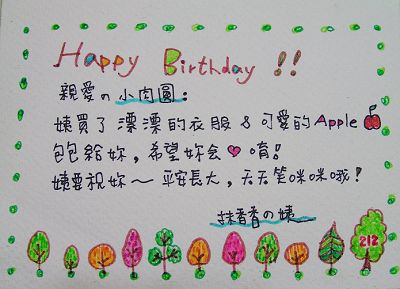 Happy Birthday !!
親愛の小肉圓：
姨買了漂漂的衣服&可愛的Apple
包給妳，希望妳會♥唷！
姨要祝妳～平安長大，天天笑咪咪哦！
抹香香の姨
212